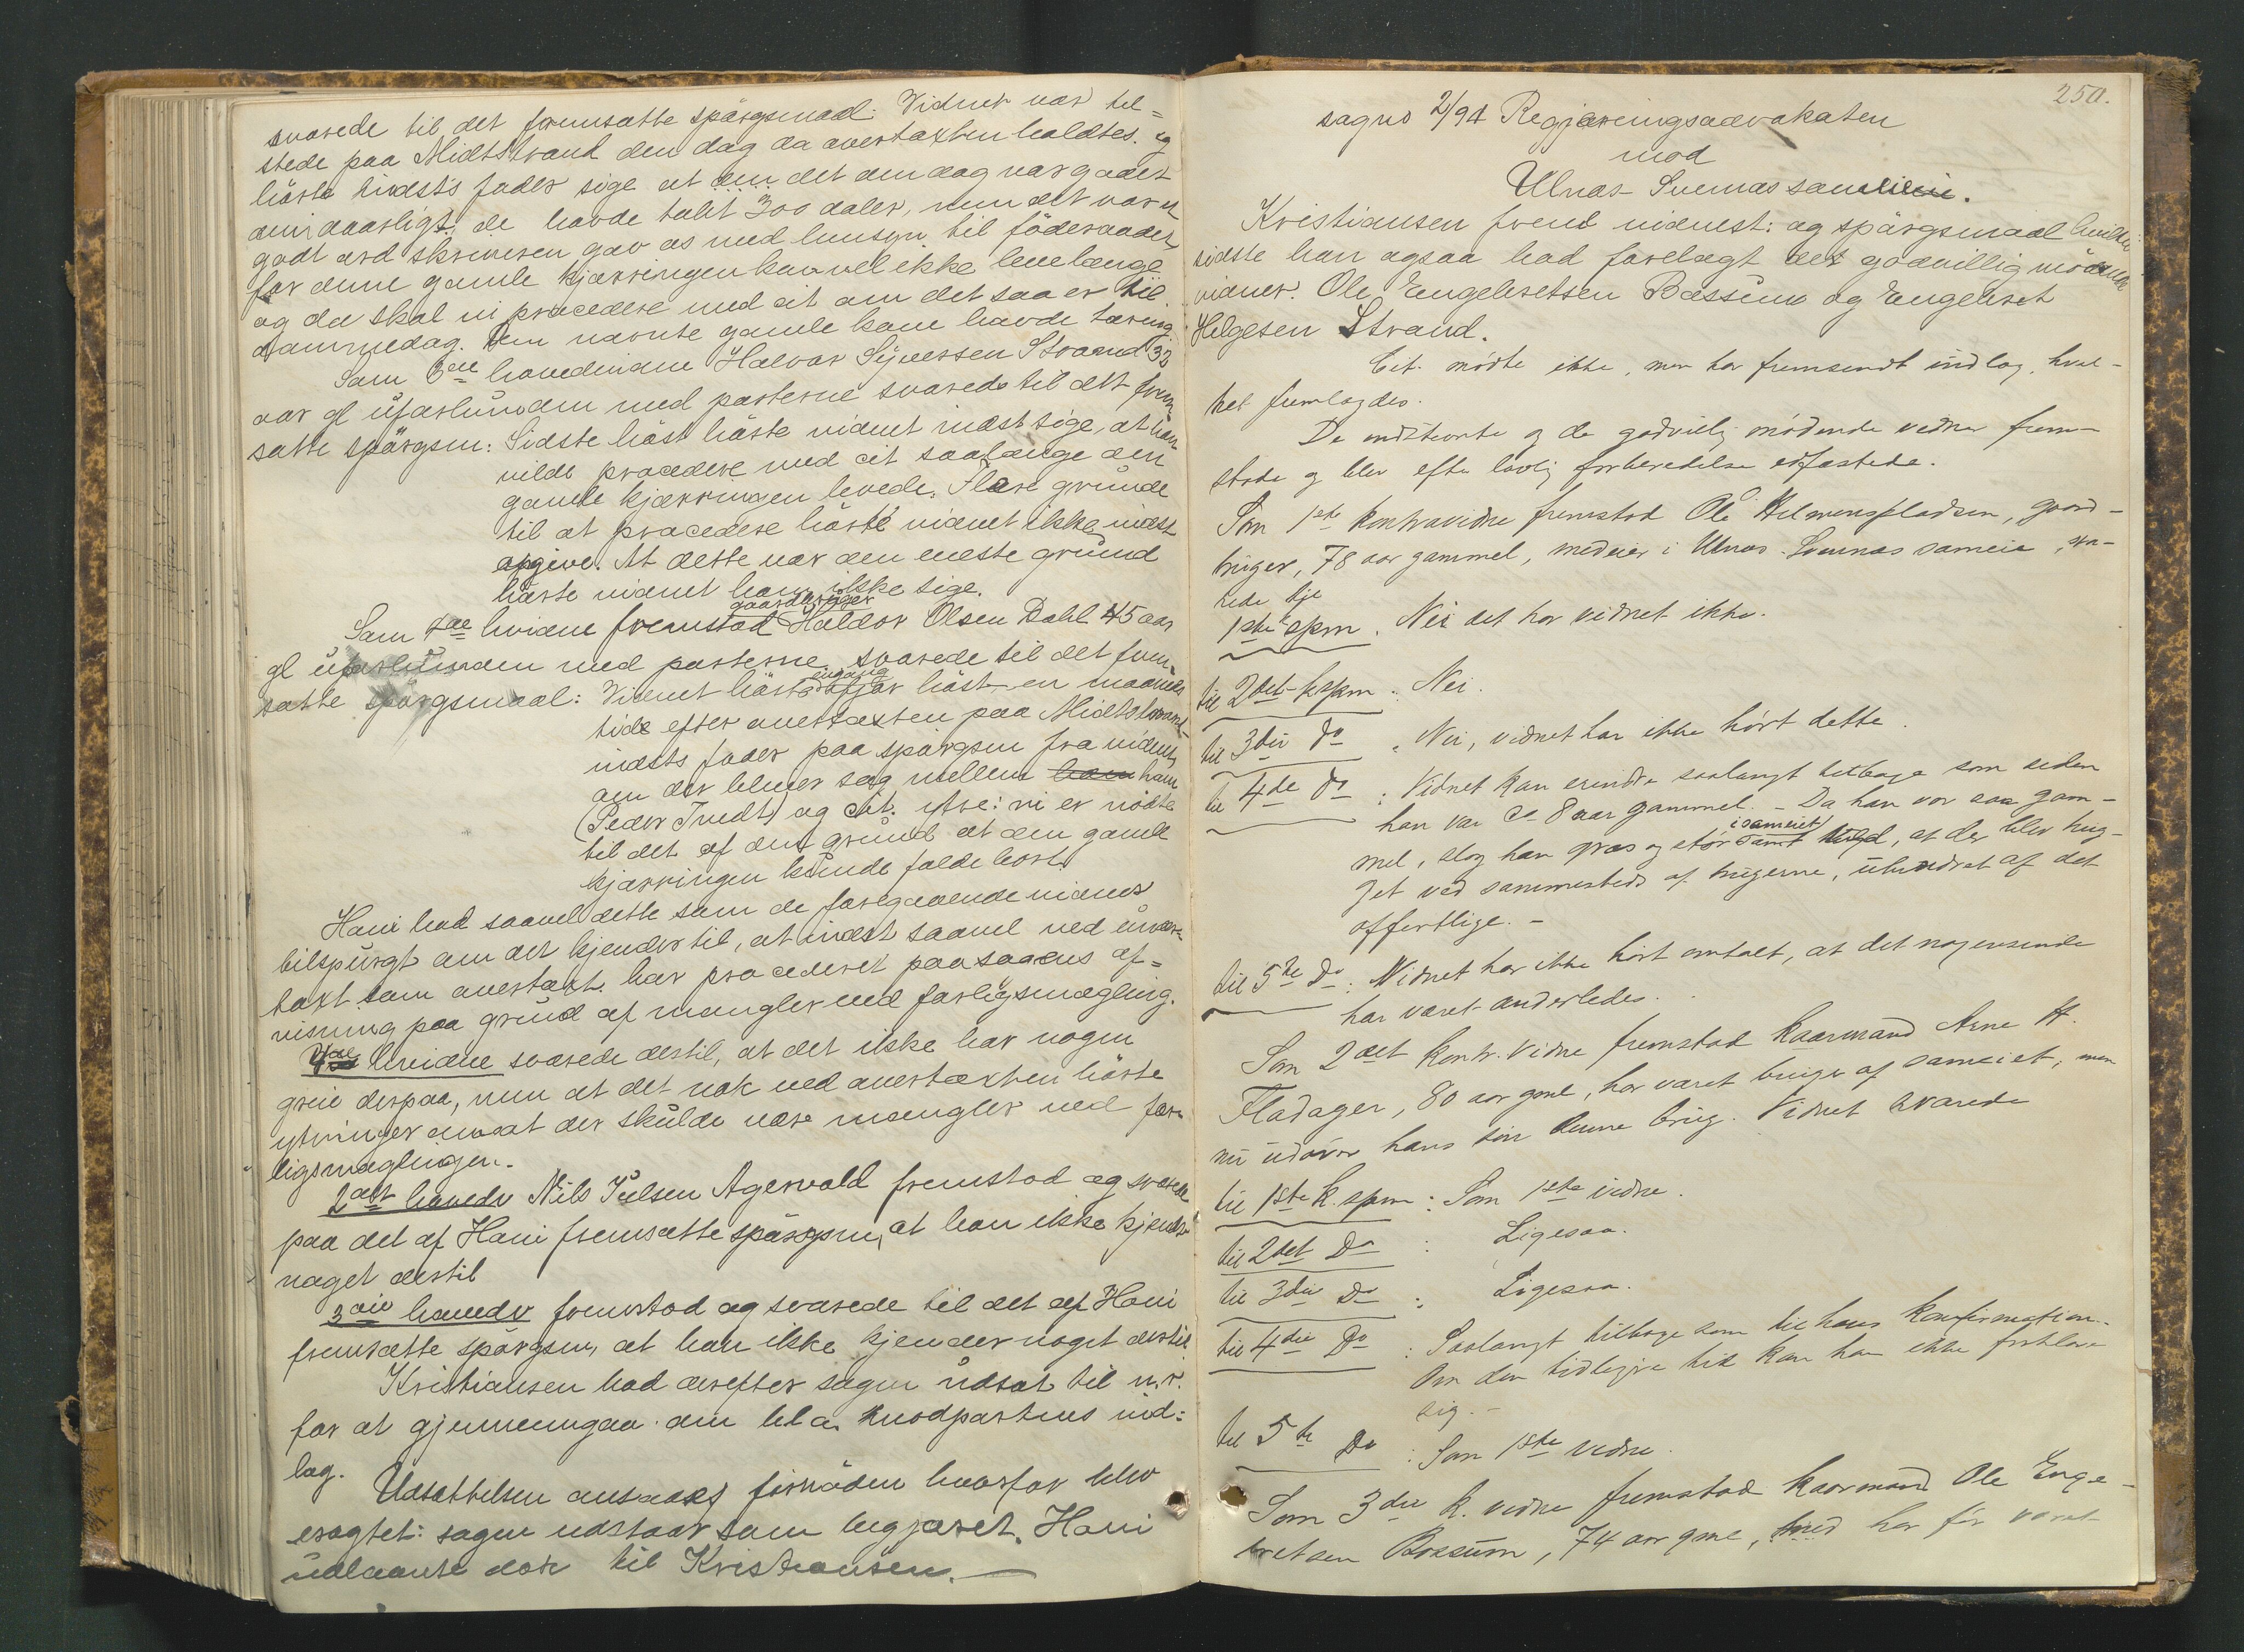 svarede til det fremsatte spörgsmaal: Vidnet var til=
stede paa Midtstrand den dag da overtaxten holdtes. og
hörte indst's fader sige at den det den dag var gaaet
dem daarligt, de havde talt 300 daler, men det var et
godt ord skriveren gav os med hensyn til föderaadet
for denne gamle kjærringen kan vel ikke leve længe
og da skal vi procedere med cit om det saa er til
dommedag. Den nævnte gamle kone havde tæring
Som 3die hovedvidne Halvor Syversen Strand 32
aar gl uforbunden med parterne svarede til det frem-
satte spörgsm: Sidste höst hörte vidnet indst sige, at han
vilde procedere med cit saalænge den
gamle kjærringen levede. Flere grunde
til at procedere hörte vidnet ikke indst
opgive. At dette var den eneste grund
hörte vidnet ham ikke sige.
gaardbruger
Som 4de hvidne fremstod Haldor Olsen Dahl 45 aar
gl uforbunden med parterne svarede til det frem-
engang
satte spörgsmaal: Vidnet hörte ifjor höst en maaneds
tide efter overtaxten paa Midtstrand
indsts fader paa spörgsm fra vidnet
om der bliver sag mellem ham ham
(Peder Tvedt) og cit. ytre: vi er nödte
til det af den grund at den gamle
kjærringen kunde falde bort.
Hani bad saavel dette som de foregaaende vidner
tilspurgt om det kjender til, at indst saavel ved under-
taxt som overtaxt har procederet paa sagens af=
visning paa grund af mangler ved forligsmægling.
4de hvidne svarede dertil, at det ikke har nogen
greie derpaa, men at det nok ved overtaxten hörte
ytringer om at der skulde være mangler ved for-
ligsmæglingen.
2det hovedv Nils Julsen Agervold fremstod og svarede
paa det af Hani fremsatte spörgsm, at han ikke kjender
noget dertil
3die hovedv fremstod og svarede til det af Hani
fremsatte spörgsm, at han ikke kjender noget dertil
Kristiansen bad derefter sagen udsat til n.r.
for at gjennemgaa den bl a. modpartens ind=
læg.
Udsættelsen ansaaes fornöden hvorfor blev
eragtet: sagen udstaar som begjæret. Hani
udlaante dok til Kristiansen.
250.
sagno 2/94 Regjeringsadvokaten
mod
Ulnæs-Svennæs sameie.
Kristiansen freml vidnest: og spörgsmaal hvilke
sidste han ogsaa bad forelagt det godvillig mödende
vidner. Ole Engebretsen Bøssum og Engebret
Helgesen Strand.
Cit. mödte ikke, men har fremsendt indlæg, hvil-
ket fremlagdes.
De indstevnte og de godvillig mödende vidner frem-
stode og blev efter lovlig forberedelse edfæstede.
Som 1ste kontravidne fremstod Ole Helmenspladsen, gaard-
bruger, 78 aar gammel, medeier i Ulnæs-Svennæs sameie, sva-
rede til
1ste spm. Nei det har vidnet ikke.
til 2det kspm: Nei.
til 3die Do: Nei, vidnet har ikke hört dette.
til 4de Do: Vidnet kan erindre saalangt tilbage som siden
han var ca 8 aar gammel. - Da han var saa gam-
i sameiet
mel, slog han græs og stör samt, at der blev hug-
get ved sammesteds af brugerne, uhindret af det
offentlige. -
til 5te Do: Vidnet har ikke hört omtalt, at det nogensinde
har været anderledes.
Som 2det kontr. vidne fremstod kaarmand Arne H.
Fladager, 80 aar gml, har været bruger af sameiet, men
nu udöver hans sön denne brug. Vidnet svarede
til 1ste k. spm: Som 1ste vidne.
til 2det Do: Ligesaa.
til 3die Do: Ligesaa.
til 4die Do: Saalangt tilbage som til hans konfirmation.
Om den tidligere tid kan han ikke forklare
sig. -
til 5te Do: Som 1ste vidne.
Som 3die k. vidne fremstod kaarmand Ole Enge-
bretsen Bøssum, 74 aar gml, har för været